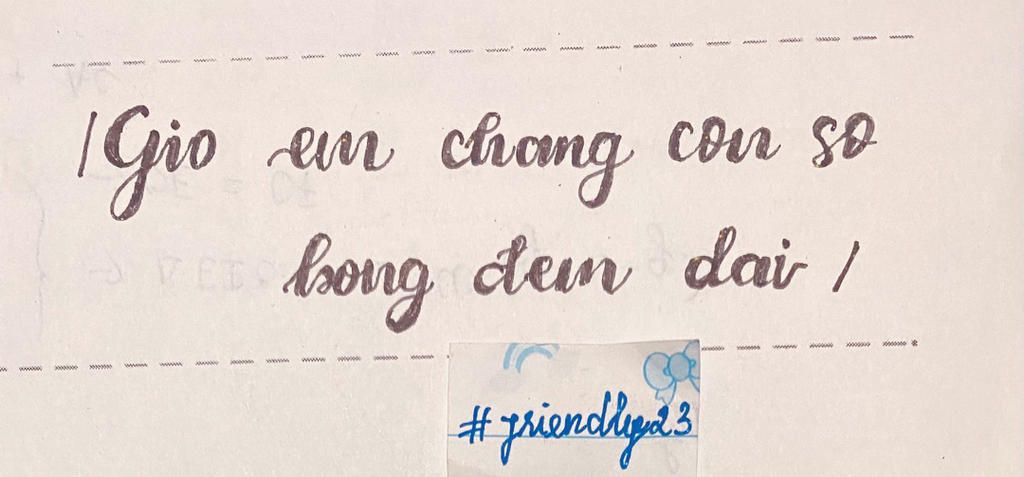 /Gio em chang con so
bong đem dai /
#friendly23